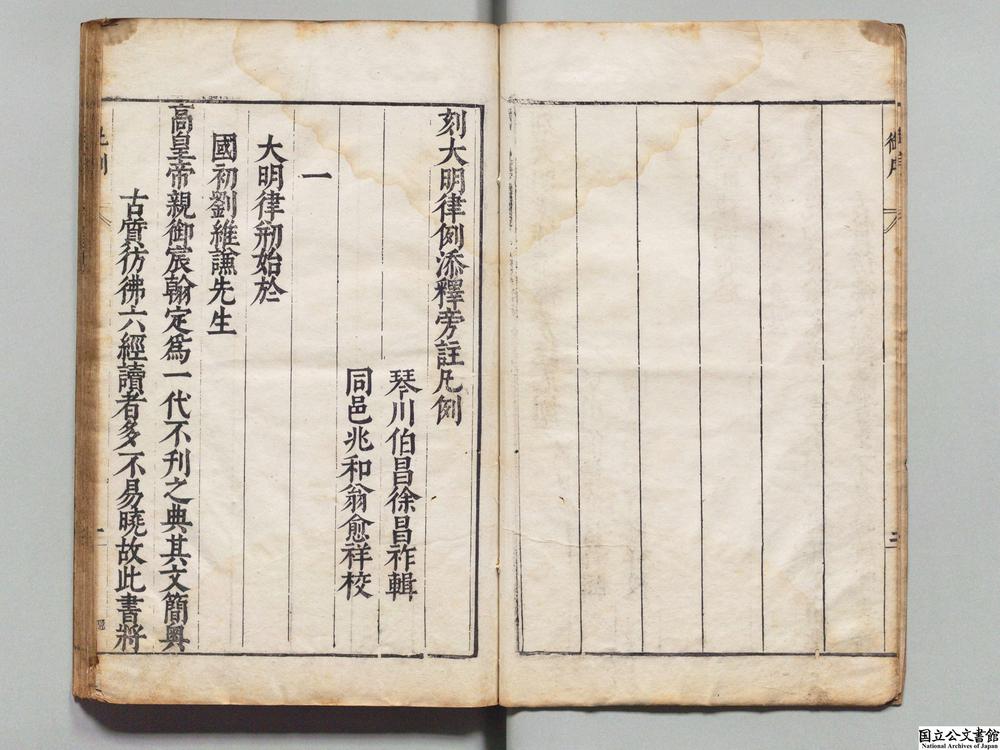 刻大明律例添釋旁註凡例
琴川伯昌徐昌祚輯
同邑兆和翁愈祥校
一
大明律刱始於
國初劉維謙先生
高皇帝親御宸翰定爲一代不刊之典其文簡奥
古質彷彿六經讀者多不易曉故此書將
凡例
一
二
国立公文書館
National Archives of Japan